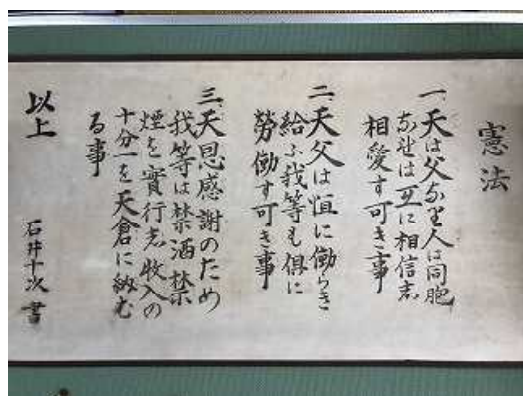 憲法
一、天は父なり人は同胞
なれは互に相信し
相愛す可き事
二、天父は恒に働らき
給ふ我等も俱に
勞働す可き事
三、天恩感謝のため
我等は禁酒禁
煙を實行し收入の
十分一を天倉に納む
る事
以上
石井十次 書